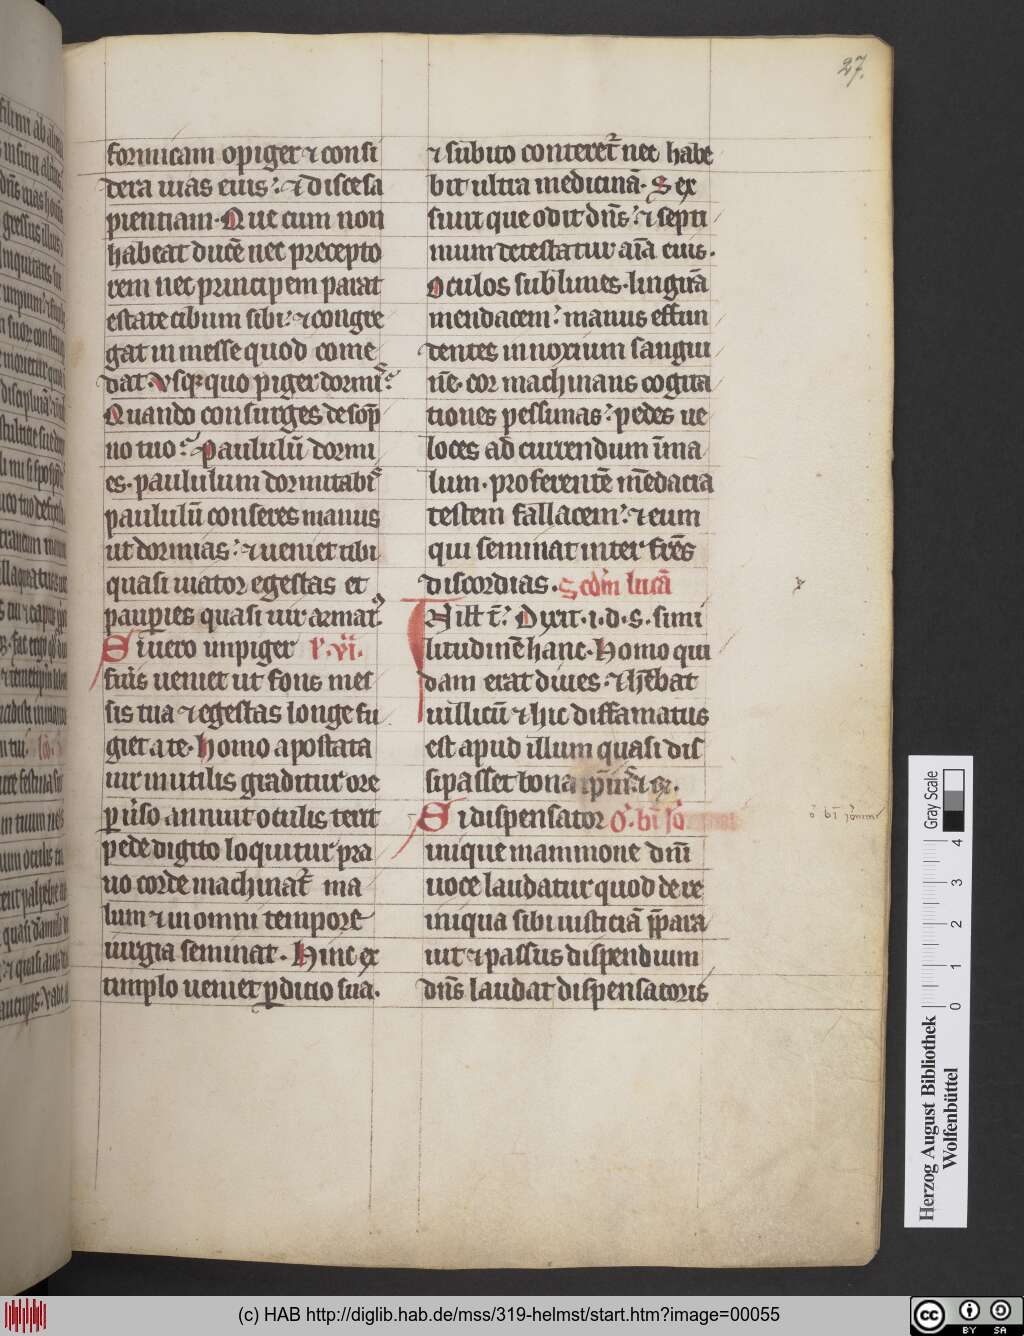 27.
formicam o piger ⁊ consi
dera uias eius. ⁊ disce sa
pientiam. Que cum non
habeat ducē nec precepto
rem nec principem parat
estate cibum sibi. ⁊ congre
gat in messe quod come
dat. Vsq; quo piger dormis?
Quando consurges de sōp
no tuo? Paululū dormi
es. paululum dormitabis
paululū conseres manus
ut dormias. ⁊ ueniet tibi
quasi uiator egestas et
pauperies quasi uir armatꝰ.
Si uero inpiger ℟. vi.
fueris ueniet ut fons mes
sis tua ⁊ egestas longe fu
giet a te. homo apostata
uir inutilis graditur ore
peruerso annuit oculis terit
pede digito loquitur pra
uo corde machinat̄ ma
lum ⁊ in omni tempore
iurgia seminat. Hinc ex
timplo ueniet ꝑditio sua.
⁊ subito conteret̄ nec habe
bit ultra medicinā. Sex
sunt que odit dn̄s. ⁊ septi
mum detestatur aīa eius.
Oculos sublimes. linguā
mendacem. manus effun
dentes innoxium sangui
nē. cor machinans cogita
tiones pessimas. pedes ue
loces ad currendum ī ma
lum. proferentē mēdacia
testem fallacem. ⁊ eum
qui seminat inter fr̄es
discordias. Scdm lucā
In illo t̄. Dixit .i.d.s. simi
litudinē hanc. Homo qui
dam erat diues. ⁊ hēbat
uillicū ⁊ hic diffamatus
est apud illum quasi dis
sipasset bona
Si dispensator O. bī Jo
inique mammone dn̄i
uoce laudatur quod de re
iniqua sibi iusticiā p̄para
uit ⁊ passus dispendium
dn̄s laudat dispensatoris
Herzog August Bibliothek
Wolfenbüttel
Gray Scale
0 1 2 3 4
(c) HAB http://diglib.hab.de/mss/319-helmst/start.htm?image=00055
cc BY SA